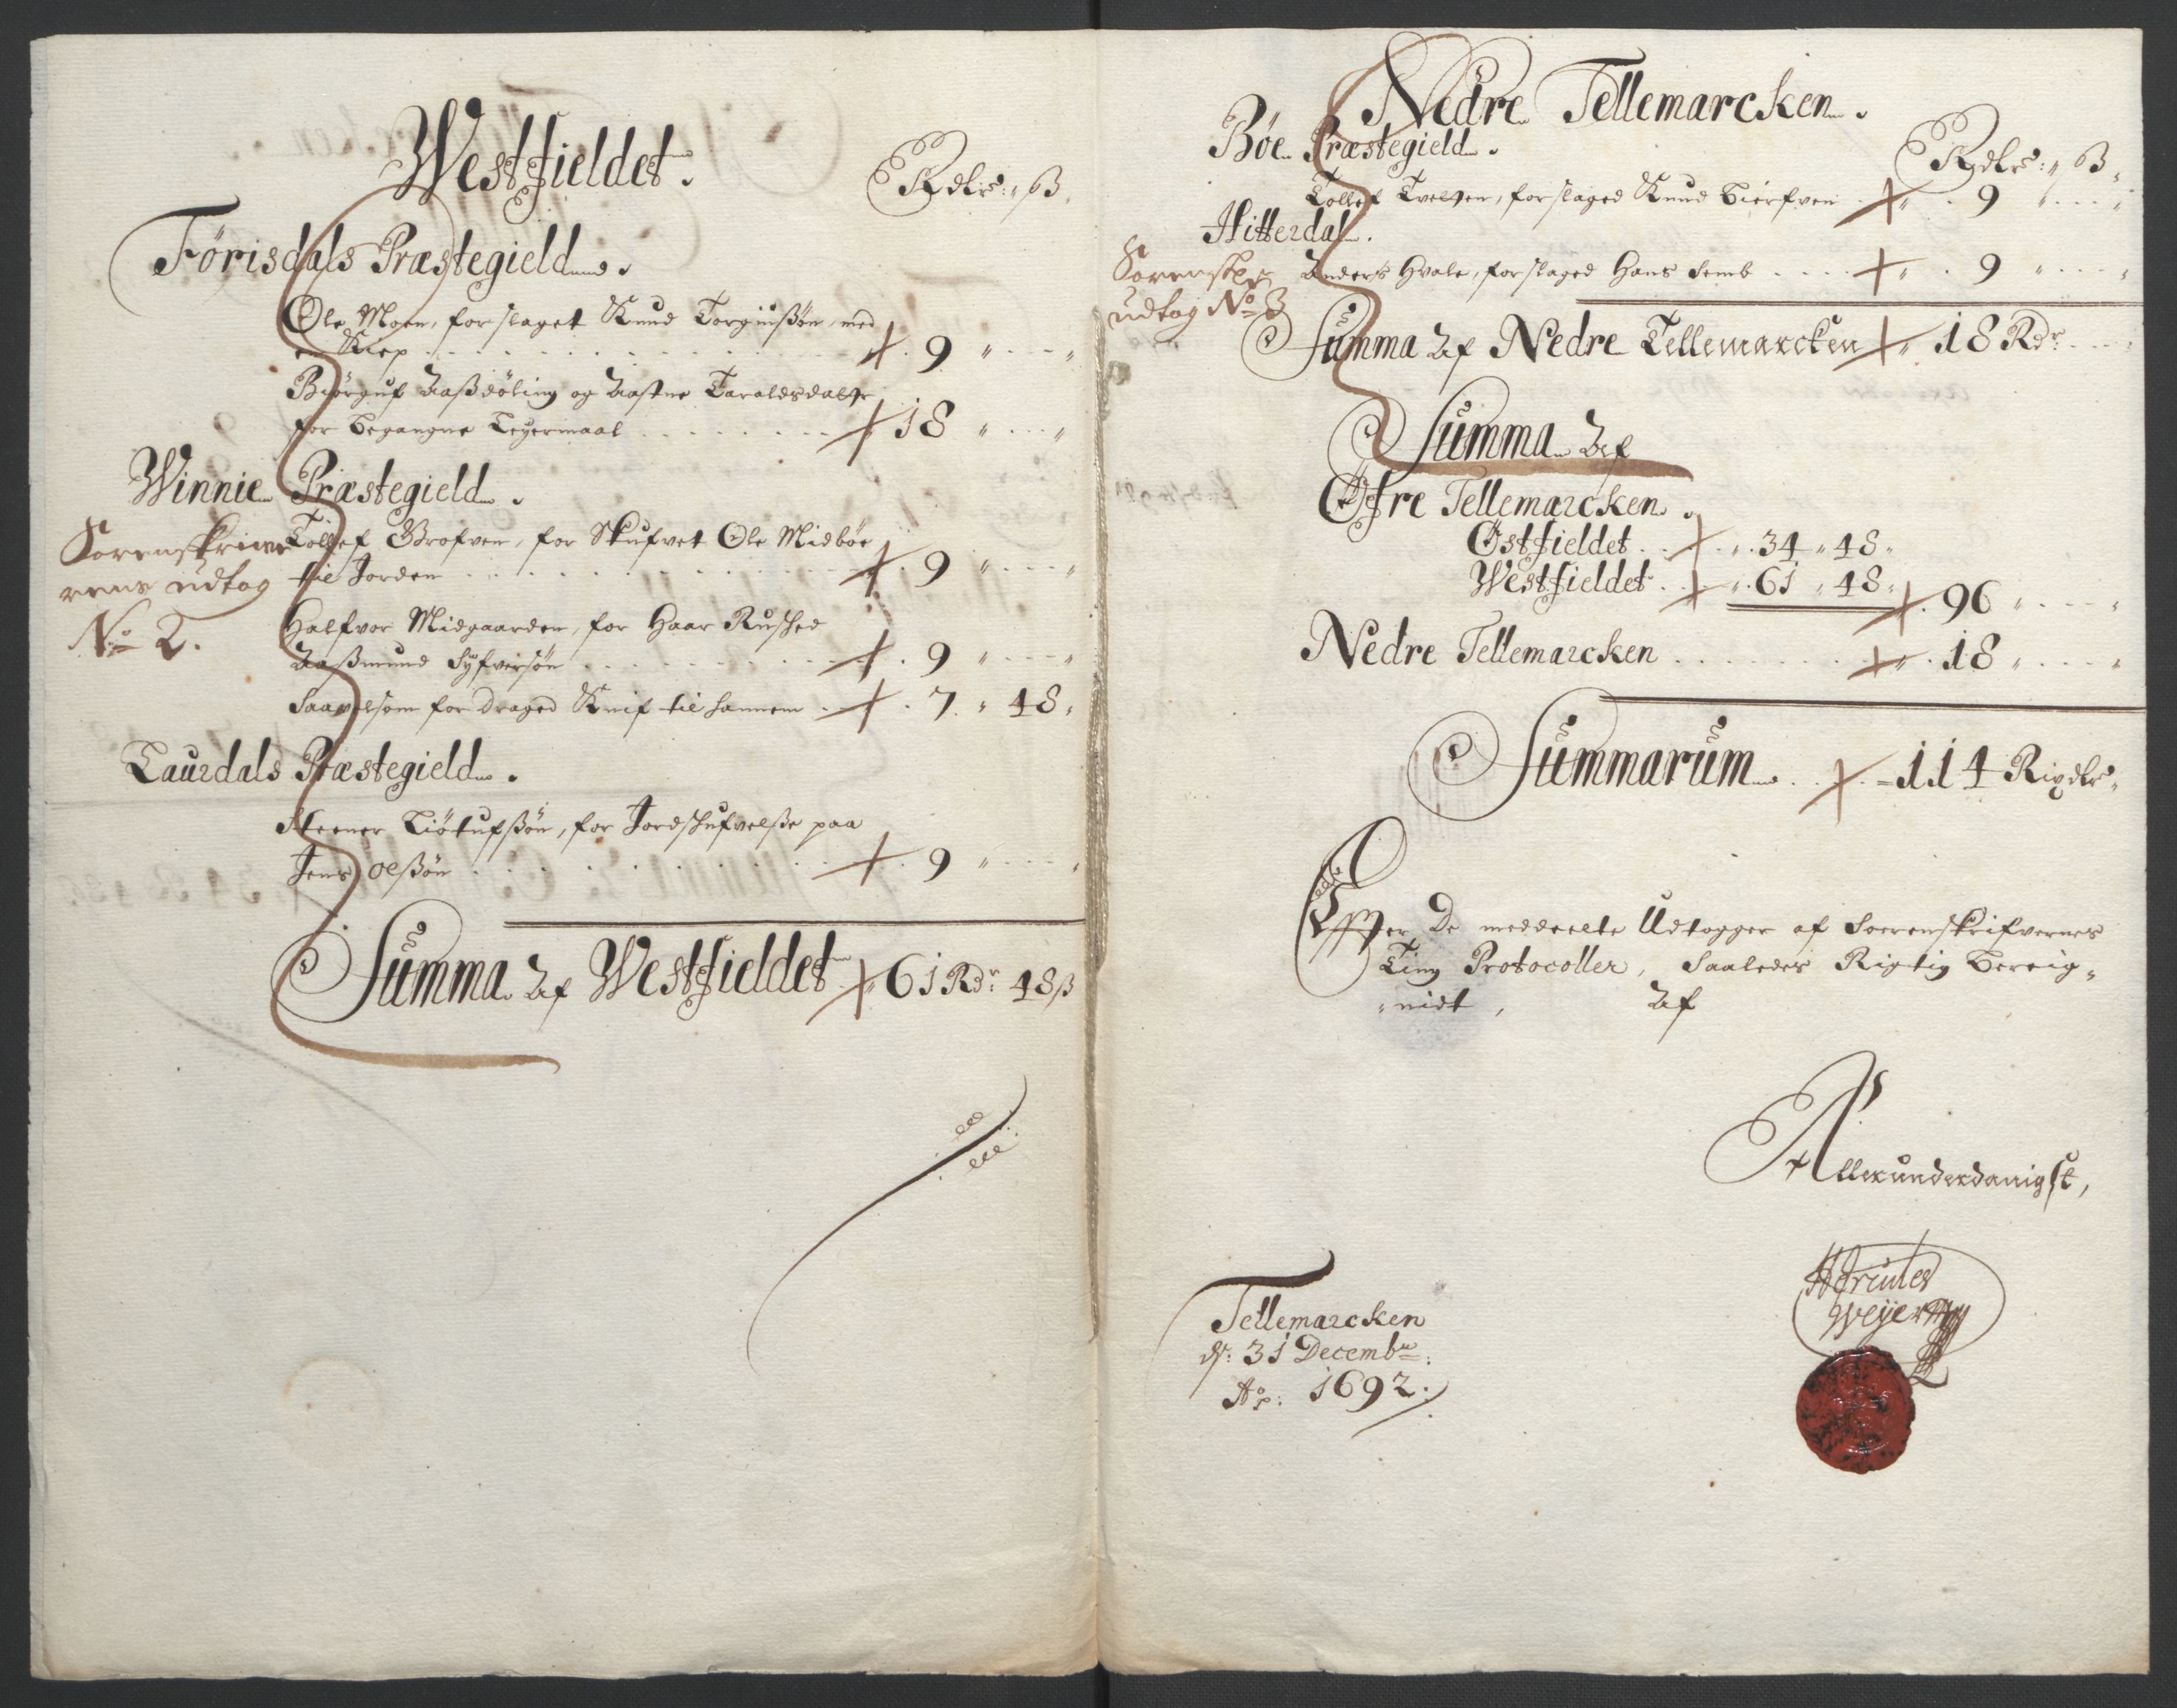 Westfieldet.
Rdlr: ß
Førisdals Præstegield.
Ole Moen, for slaget Knud Torgiußøn, med
en Kiep . . . 9 " - - "
Biørguf Aaßdøling og Aastne Taraldsdatter
for begangne Leyermaal . . . 18 " - - "
Winnie Præstegield.
Sorenskriver
Tollef Grofven, for Skufvet Ole Midbøe
rens udtog
til Jorden . . . 9 " - - "
No 2.
Halfvor Midgaarden, for Haar Rusched
Aaßmund Syfversøn . . . 9 " - - "
Saavelsom for draged Knif til hannem . 7 " 48 "
Laurdals Præstegield.
Steener Liøtufßøn, for Jordskufvelße paa
Jens Olßøn . . . 9 " - - "
Summa Af Westfieldet 61 Rdr 48 ß
Nedre Tellemarcken.
Bøe Præstegield.
Rdlr: ß
Tollef Tveten, for slaged Knud Bierfven . 9 " - - "
Hitterdal.
Sorenskr
Anders Hvale, for slaged Hans Semb . . . 9 " - - "
udtog No 3
Summa Af Nedre Tellemarcken 18 Rdr - -
Summa Af
Øfre Tellemarcken.
Østfieldet . . 34 " 48 "
Westfieldet . . 61 " 48 " 96 " - - "
Nedre Tellemarcken . . . 18 " - - "
Summarum . . 114 Rixdlr
Effter De meddeelte Udtogger af Sorenskrifvernes
Ting Protocoller, Saaledes Rigtig bereig-
nidt, Af
Allerunderdanigst,
Hercules
Weyer
Tellemarcken
d: 31 Decembr:
Ao: 1692.